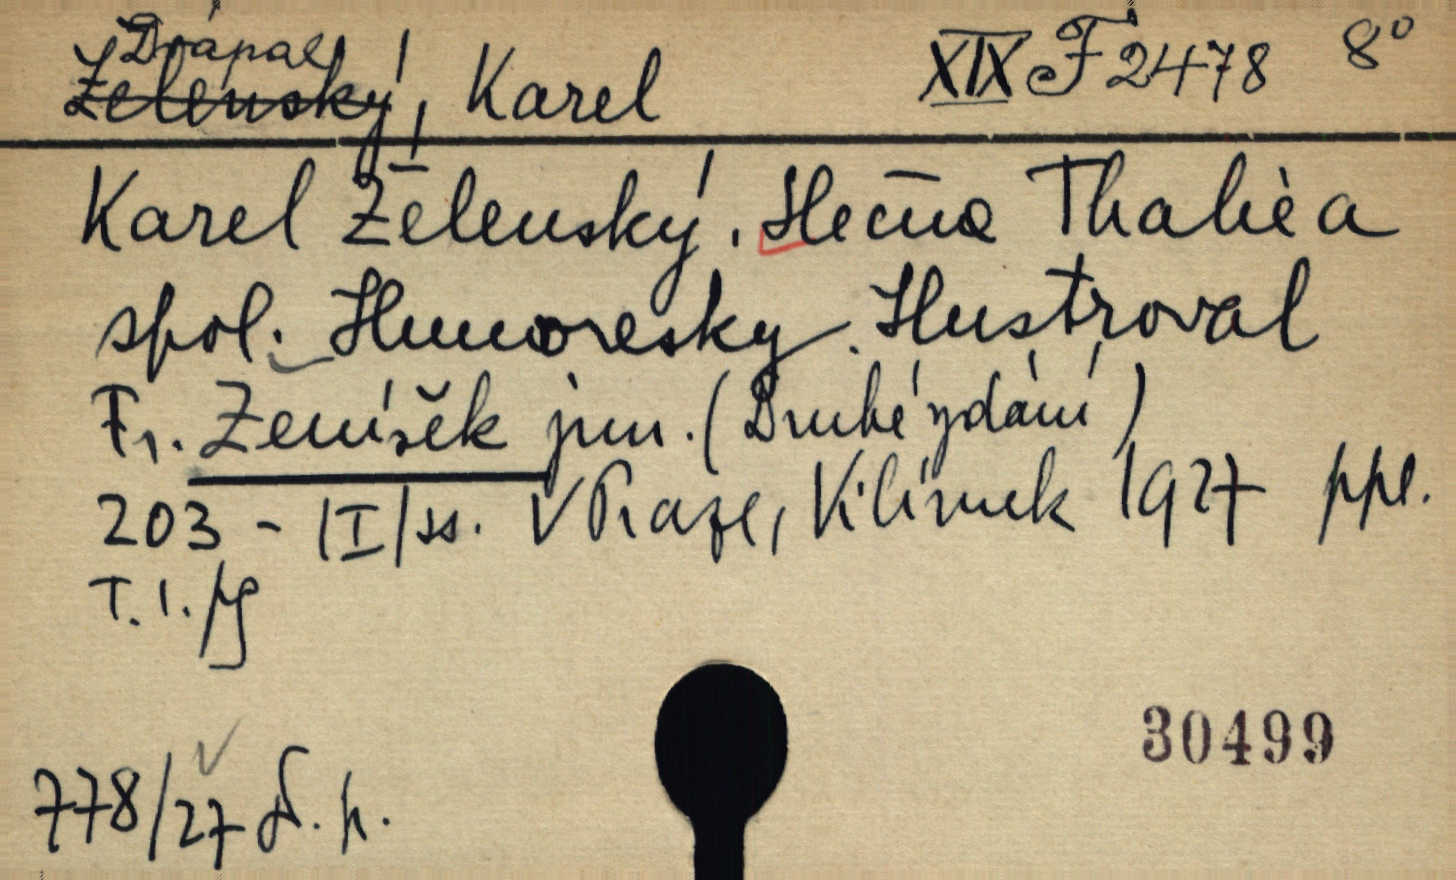 Drápal
Želenský, Karel XIX F 2478 8°
Karel Želenský. Slečna Thalie a
spol. Humoresky. Ilustroval
Fr. Ženíšek jun. (Druhé vydání)
203 - |I| ss. V Praze, Klimek 1927 ppl.
T. 1.
778/27 d. p.
30499